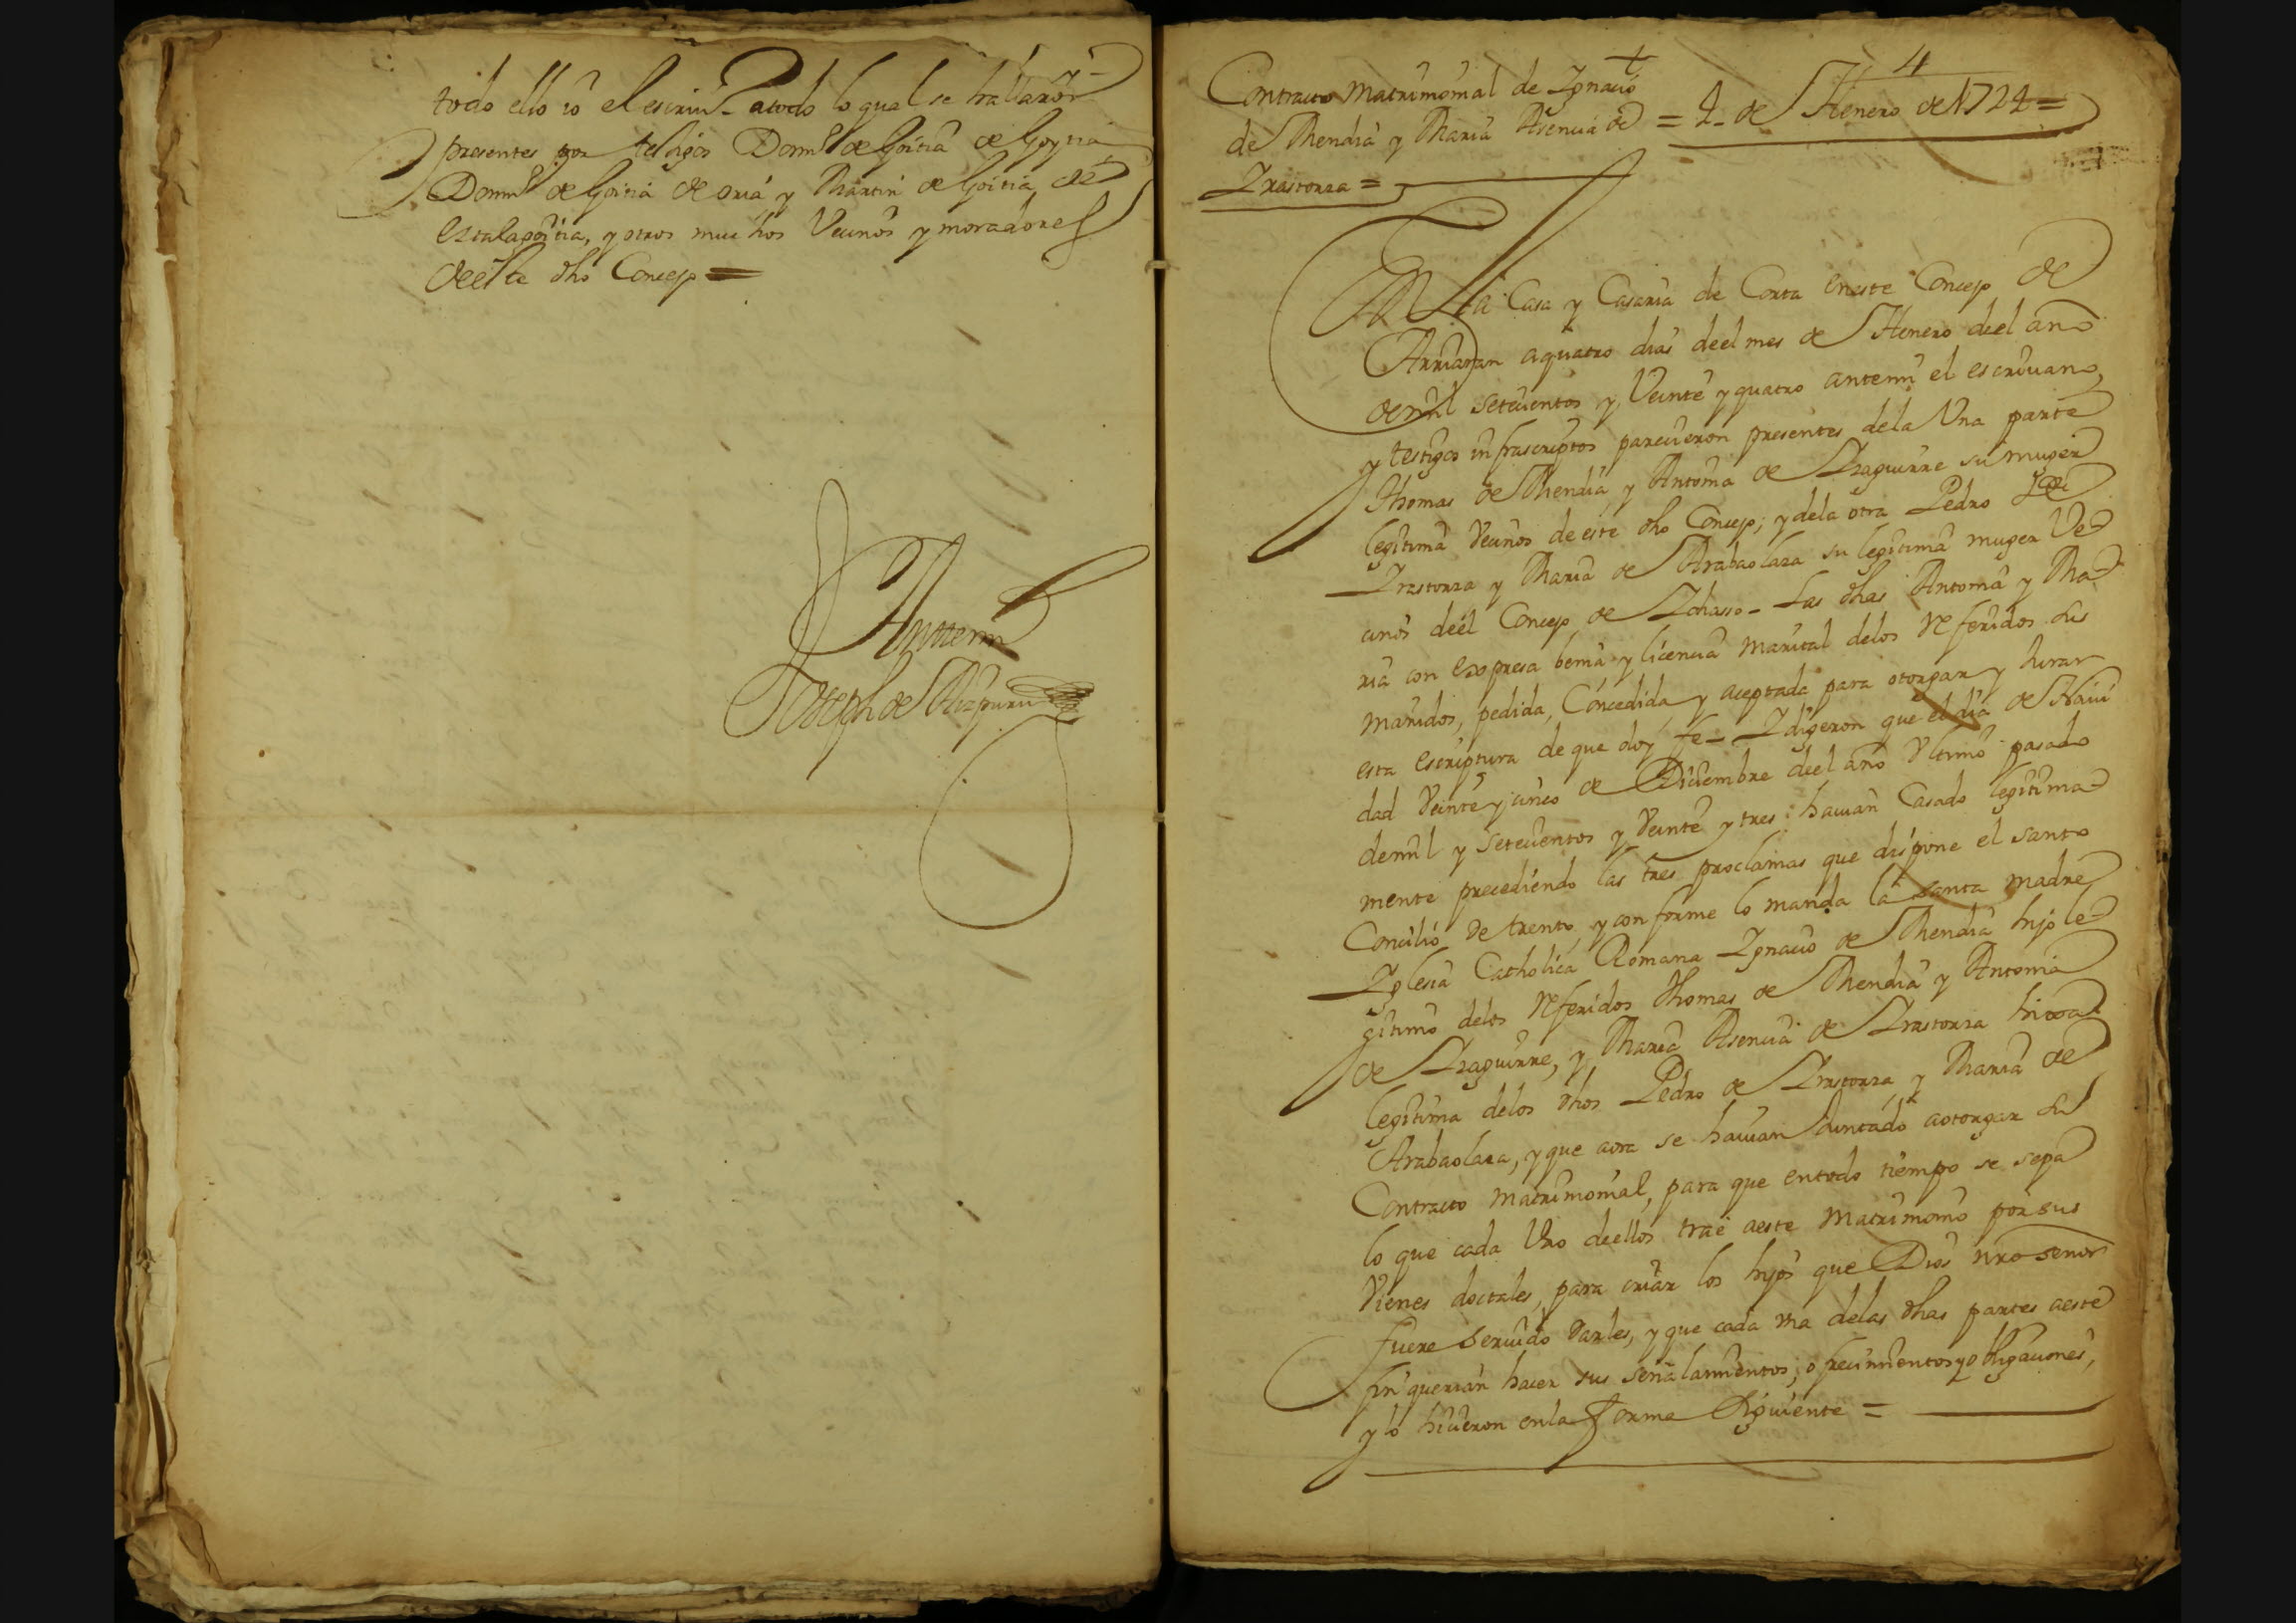 todo ello io el escriu.º atodo lo qual se hallaron
presentes por testigos Dom.º de Goitia de Goytia
Dom.º de Goitia de oria y Martin de Goitia de
estalagoitia, y otros muchos Vecinos y moradores
deeste dho Concejo =
Anttemi
Joseph de Aizpuru
4
Contracto Matrimonial de Ignacio
de Mendia y Maria Asencia de = 4 - de Henero de 1724 =
Irastorza =
En la Casa y Caseria de Corta eneste Concejo de
Arriaran aquatro dias deel mes de Henero deel año
demil setecientos y Veinte y quatro antemi el escriuano,
y testigos infrascriptos parecieron presentes dela Una parte
Thomas de Mendia y Antonia de Izaguirre su muger
legitima Vecinos de este dho Concejo; y dela otra Pedro de
Irastorza y Maria de Arabaolaza su legitima muger Ve
cinos deel Concejo de Ichasso - Las dhas Antonia y Ma
ria con expresa benia y licencia marital delos referidos sus
maridos, pedida, Concedida y aceptada para otorgar y Jurar
esta escriptura de que doy fe - I digeron que el dia de Naui
dad Veinte y cinco de Diciembre deel año Vltimo pasado
demil y setecientos y Veinte y tres hauian Casado legitima
mente precediendo las tres proclamas que dispone el santo
Concilio de trento y conforme lo manda la santa madre
Iglesia Catholica Romana Ignacio de Mendia hijo le
gitimo delos referidos Thomas de Mendia y Antonia
de Izaguirre, y Maria Asencia de Irastorza hixa
legitima delos dhos Pedro de Irastorza y Maria de
Arabaolaza, y que aora se hauian Juntado aotorgar su
Contracto matrimonial, para que entodo tiempo se sepa
lo que cada Uno deellos trae aeste Matrimonio por sus
Vienes doctales, para criar los hijos que Dios nro señor
fuere seruido darles, y que cada vna delas dhas partes aeste
fin querian hacer sus señalamientos, ofrecimientos y obligaciones,
y lo hicieron enla forma siguiente =